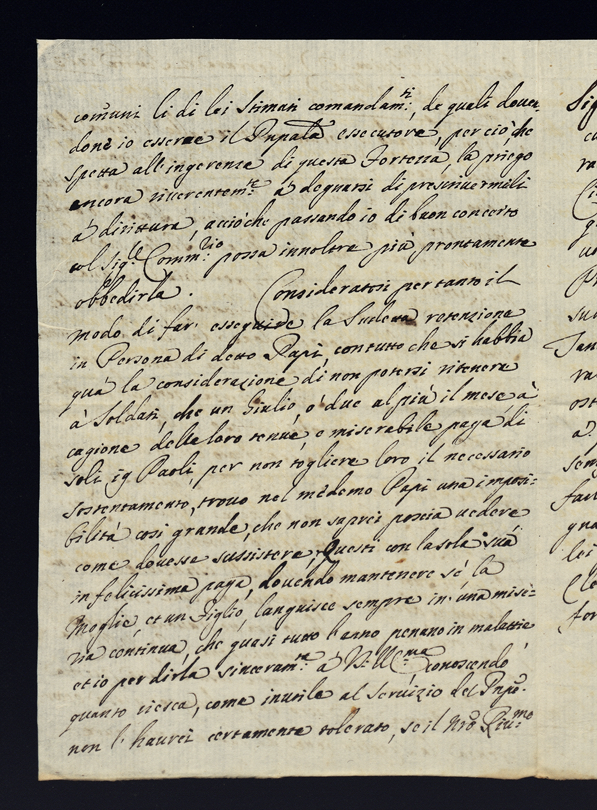 comuni li di lei stimati comandam.ti, de quali doven-
done io essere il Pnpale essecutore, per ciò, che
spetta all'ingerenze di questa Fortezza, la priego
ancora riverentem.te à deguarsi di prescrivermeli
à dirittura, acciò che passando io di buon concerto
col Sig.e Comm.rio possa innoltre più prontamente
obbedirla. Consideratosi per tanto il
modo di far' esseguire la Sudeta retenzione
in Persona di detto Papi, con tutto che si habbia
quà la considerazione di non potersi ritenere
à Soldati, che un Giulio, o' due al più il mese à
cagione della loro tenue, e miserabile paga di
soli 19 Paoli, per non togliere loro il necessario
sostentamento, trovo nel medemo Papi una impossi=
bilità così grande, che non saprei poscia vedere
come dovesse sussistere; Questi con la sola sua
infelicissima paga, dovendo mantenere sé la
Moglie, et un Figlio, languisce sempre in una mise=
ria continua, che quasi tutto l'anno penano in malattie
et io per dirla sinceram.te à V.S. Ill.ma conoscendo
quanto riesca, come inutile al servizio del Pnpe.
non l'haurei certamente tolerato, se il Nro